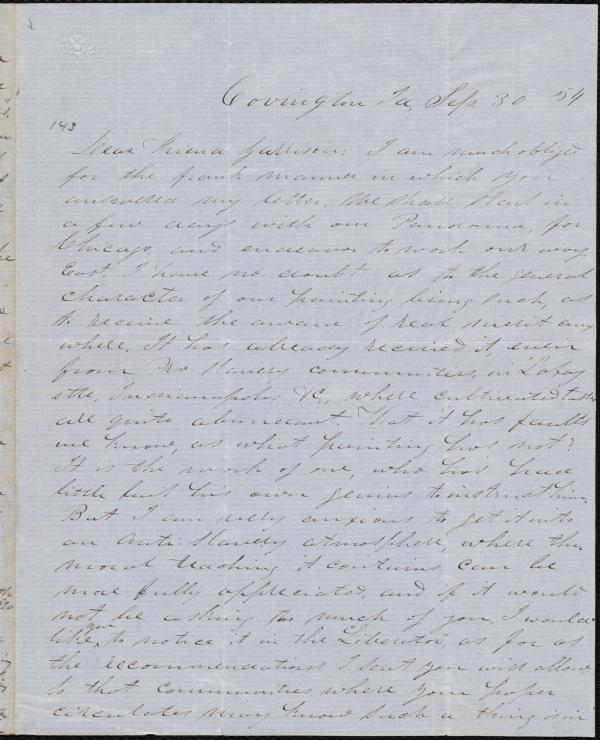 Covington Ia, Sep. 30. 54
143
Dear Friend Garrison: I am much obliged
for the frank manner in which you
answered my letter. We shall start in
a few days with our Panorama, for
Chicago, and endeavor to work our way
East. I have no doubt as to the general
character of our painting being such, as
to receive the award of real merit any
where. It has already received it, even
from Pro Slavery communities, in Lafay
ette, Indianapolis &c., where cultivated tastes
are quite abundant. That it has faults
we know, as what painting has not?
It is the work of one, who has had
little but his own genius to instruct him.
But I am very anxious to get it into
an Anti Slavery atmosphere, where the
moral teaching it contains can be
more fully appreciated, and if it would
not be asking too much of you, I would
like you to notice it in the "Liberator", as far as
the recommendations I sent you will allow
so that communities where your paper
circulates may know such a thing is in